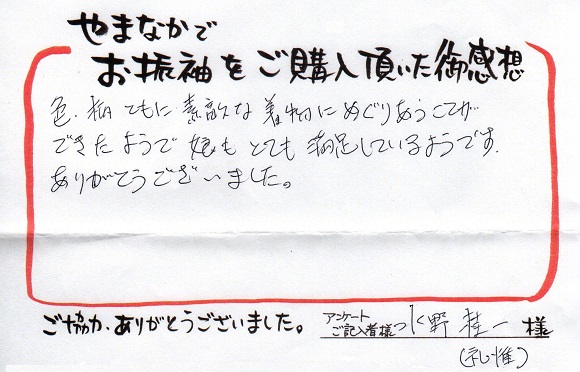 やまなかで
お振袖をご購入頂いた御感想
色・柄ともに素敵な着物にめぐりあうことが
できたようで娘もとても満足しているようです。
ありがとうございました。
ご協力、ありがとうございました。
アンケート
ご記入者様 水野 桂一 様
(礼惟)